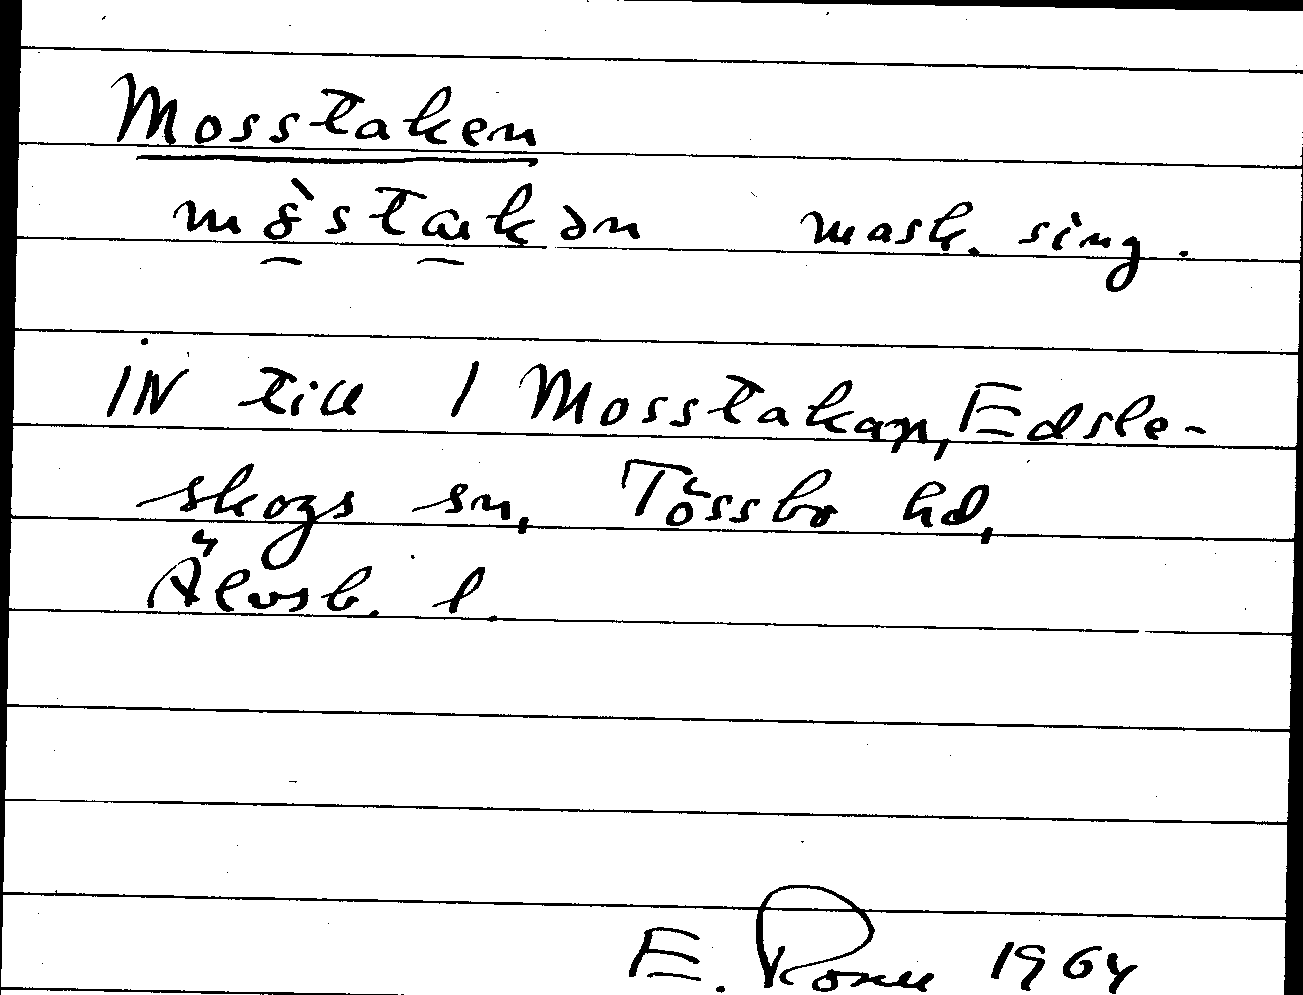 Mosstaken
mask. sing.
IN till 1 Mosstakan, Edsle-
skogs sn, Tössbo hd,
Älvsb. l.
E. 1964